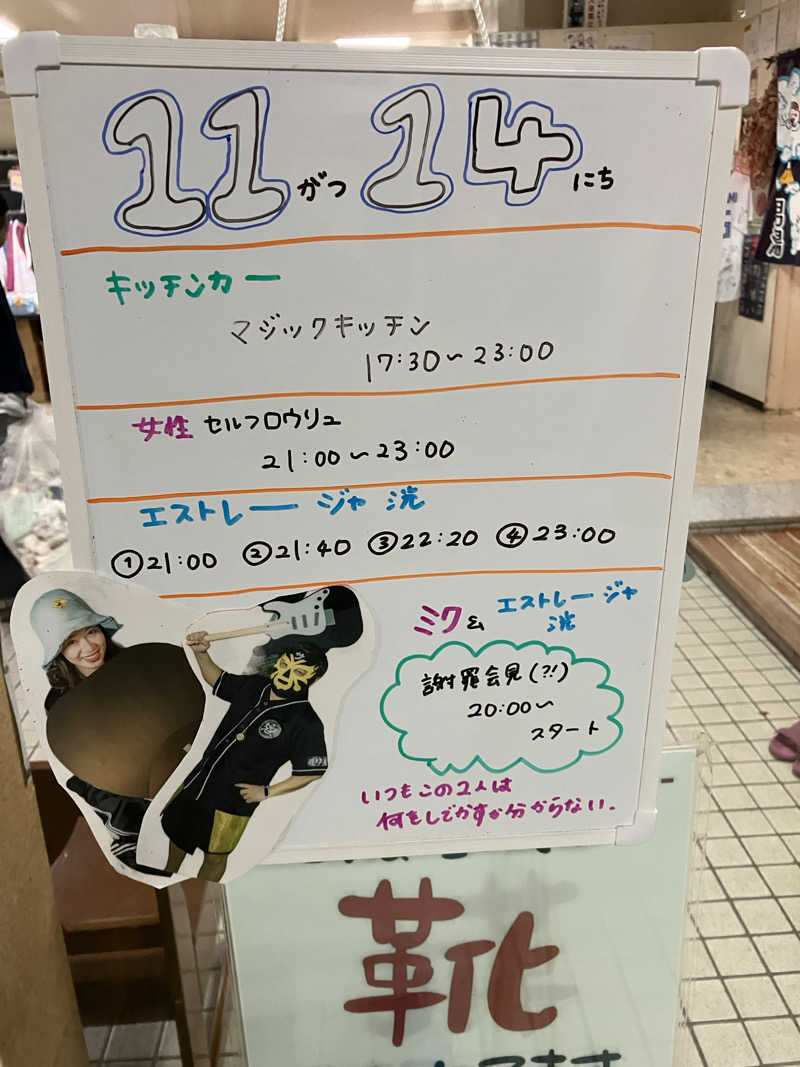 11がつ14にち
キッチンカー
マジックキッチン
17:30〜23:00
女性 セルフロウリュ
21:00〜23:00
エストレージャ 洸
①21:00 ②21:40 ③22:20 ④23:00
ミク& エストレージャ
洸
謝罪会見(?!)
20:00〜
スタート
いつもこの2人は
何をしでかすか分からない.
靴